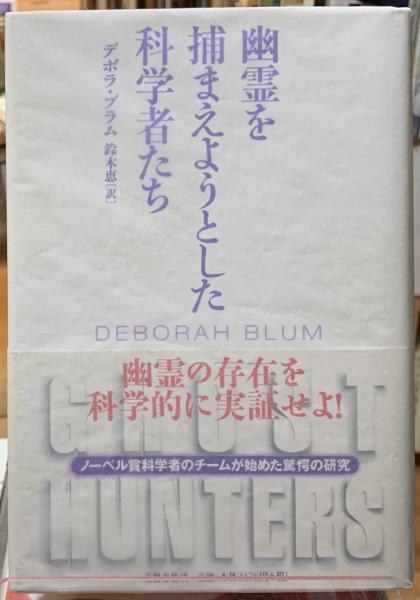 幽霊を
捕まえようとした
科学者たち
デボラ・ブラム 鈴木恵[訳]
DEBORAH BLUM
幽霊の存在を
科学的に実証せよ!
GHOST
ノーベル賞科学者のチームが始めた驚愕の研究
HUNTERS